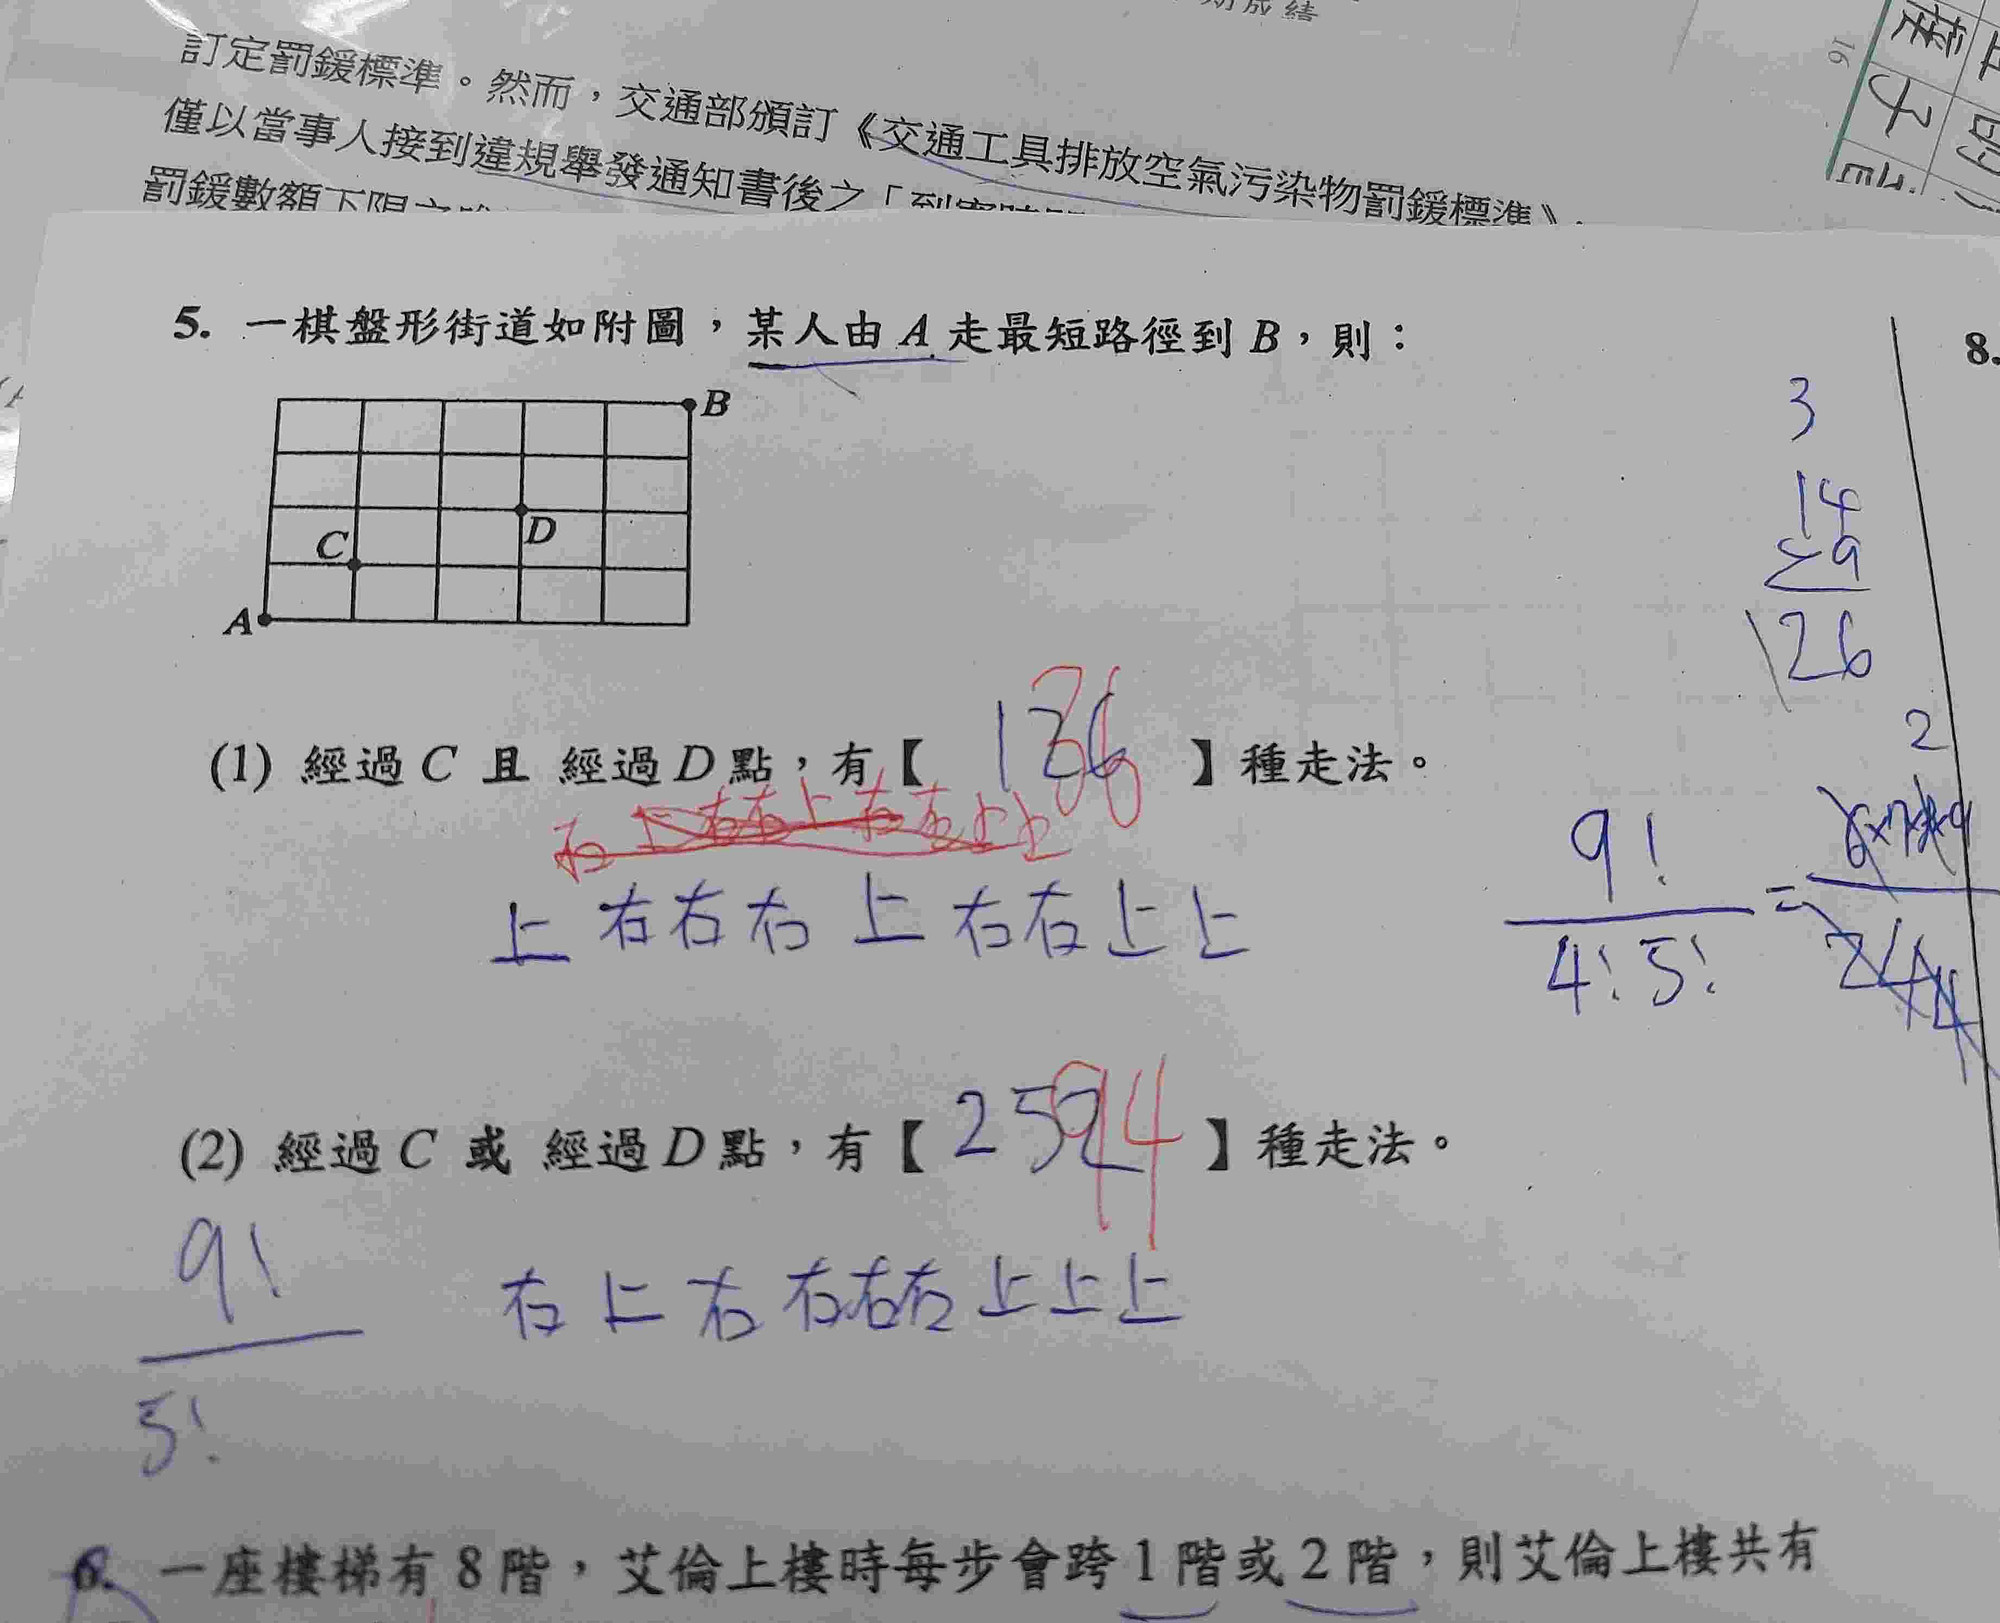 訂定罰鍰標準。然而，交通部頒訂《交通工具排放空氣污染物罰鍰標準》
僅以當事人接到違規舉發通知書後之「到案時間
罰鍰數額下限之
16
5. 一棋盤形街道如附圖，某人由 A 走最短路徑到 B，則：
8.
B
D
C
A
3
14
×9
126
(1) 經過 C 且 經過 D 點，有【 36 】種走法。
上 右右右 上 右右上上
9!
4!5!
=
2
(2) 經過 C 或 經過 D 點，有【 94 】種走法。
9!
5!
右上右右右右上上上
6. 一座樓梯有 8 階，艾倫上樓時每步會跨 1 階或 2 階，則艾倫上樓共有